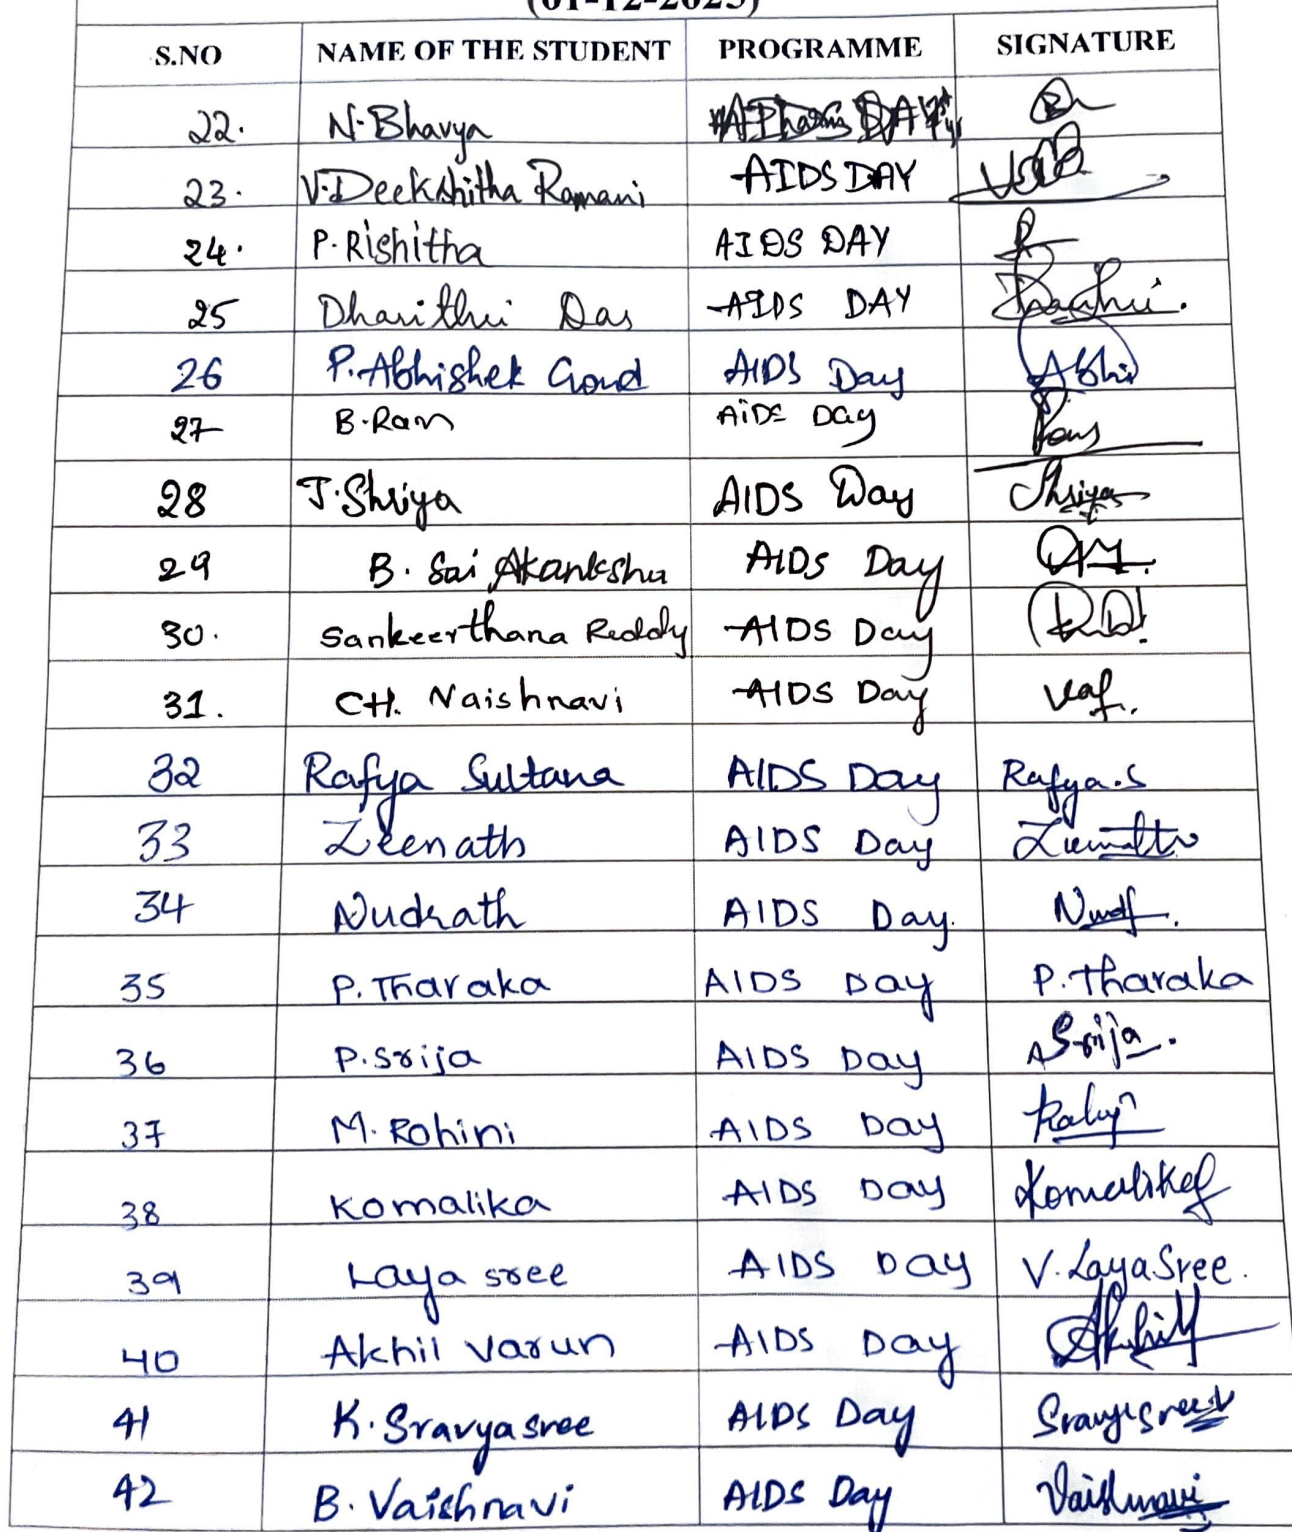 (01-12-2023)
S.NO NAME OF THE STUDENT PROGRAMME SIGNATURE
22. N. Bhavya
23. V. Deekshitha Ramani AIDS DAY
24. P. Rishitha AIDS DAY
25 Dharithri Das AIDS DAY
26 P. Abhishek Goud AIDS Day Abhi
27 B. Ram AiDS Day
28 J. Shriya AIDS Day Shriya
29 B. Sai Akanksha AIDS Day
30. Sankeerthana Reddy AIDS Day
31. CH. Vaishnavi AIDS Day
32 Rafya Sultana AIDS Day Rafya.S
33 Zeenath AIDS Day
34 Nudrath AIDS Day.
35 P. Tharaka AIDS Day P. Tharaka
36 P. Srija AIDS Day Srija.
37 M. Rohini AIDS Day
38 Komalika AIDS Day
39 Laya sree AIDS Day V. Laya Sree.
40 Akhil varun AIDS Day Akhil
41 K. Sravyasree AIDS Day
42 B. Vaishnavi AIDS Day Vaishnavi